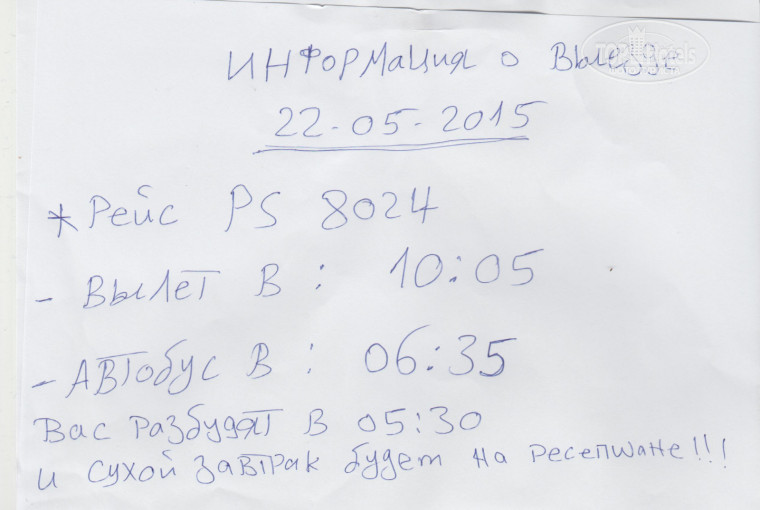 ИНФОРМАЦИЯ о ВЫЕЗДЕ
22-05-2015
* Рейс PS 8024
- ВЫЛЕТ В : 10:05
- АВТОбус В : 06:35
Вас разбудят в 05:30
и сухой завтрак будет на ресепшане!!!